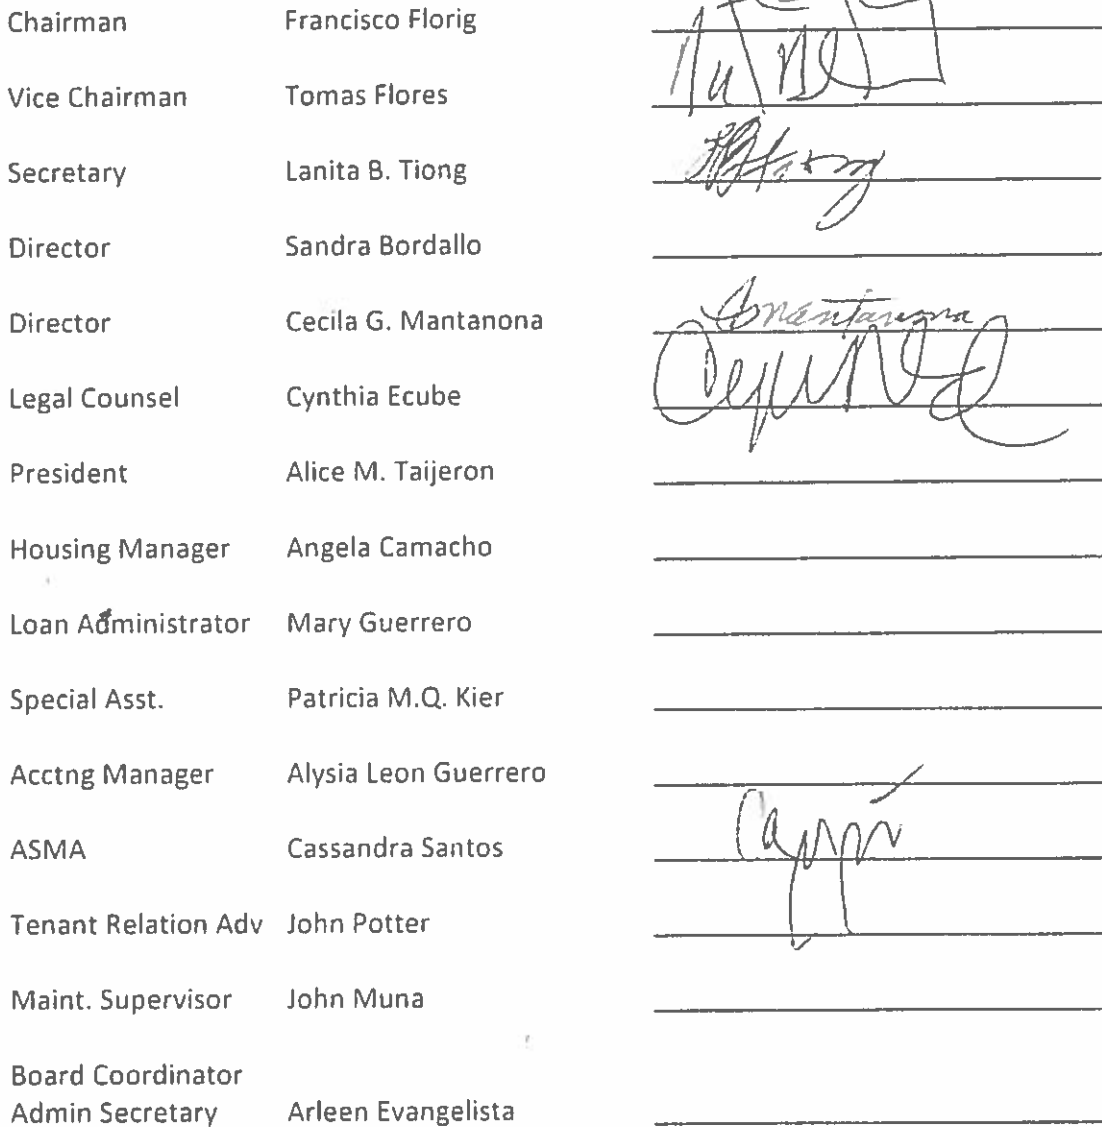 Chairman Francisco Florig
Vice Chairman Tomas Flores
Secretary Lanita B. Tiong
Director Sandra Bordallo
Director Cecila G. Mantanona Cmantanona
Legal Counsel Cynthia Ecube
President Alice M. Taijeron
Housing Manager Angela Camacho
Loan Administrator Mary Guerrero
Special Asst. Patricia M.Q. Kier
Acctng Manager Alysia Leon Guerrero
ASMA Cassandra Santos
Tenant Relation Adv John Potter
Maint. Supervisor John Muna
Board Coordinator
Admin Secretary Arleen Evangelista